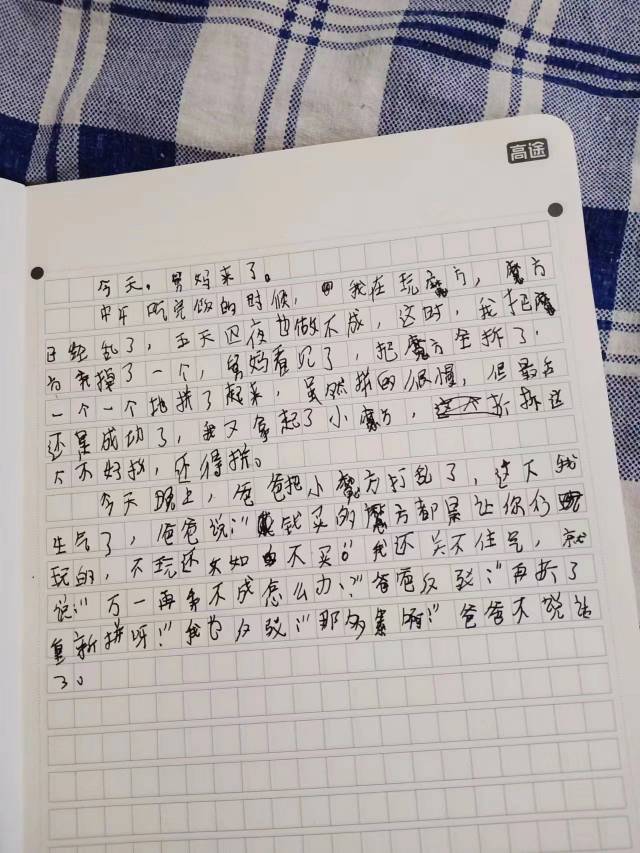 高途
今天。舅妈来了。
中午吃完饭的时候，我在玩魔方，魔方
已经乱了，五天四夜也做不成，这时，我把魔
方弄掉了一个，舅妈看见了，把魔方全拆了，
一个一个地拼了起来，虽然拼的很慢，但最后
还是成功了，我又拿起了小魔方，拆拆这
个不好拆，还得拼。
今天晚上，爸爸把小魔方打乱了，这下我
生气了，爸爸说：“钱买的魔方都是让你们
玩的，不玩还不如不买。”我还关不住气，就
说：“万一再弄不成怎么办？”爸爸反驳：“再拆了
重新拼呀！”我也反驳：“那多累啊！”爸爸不说话
了。